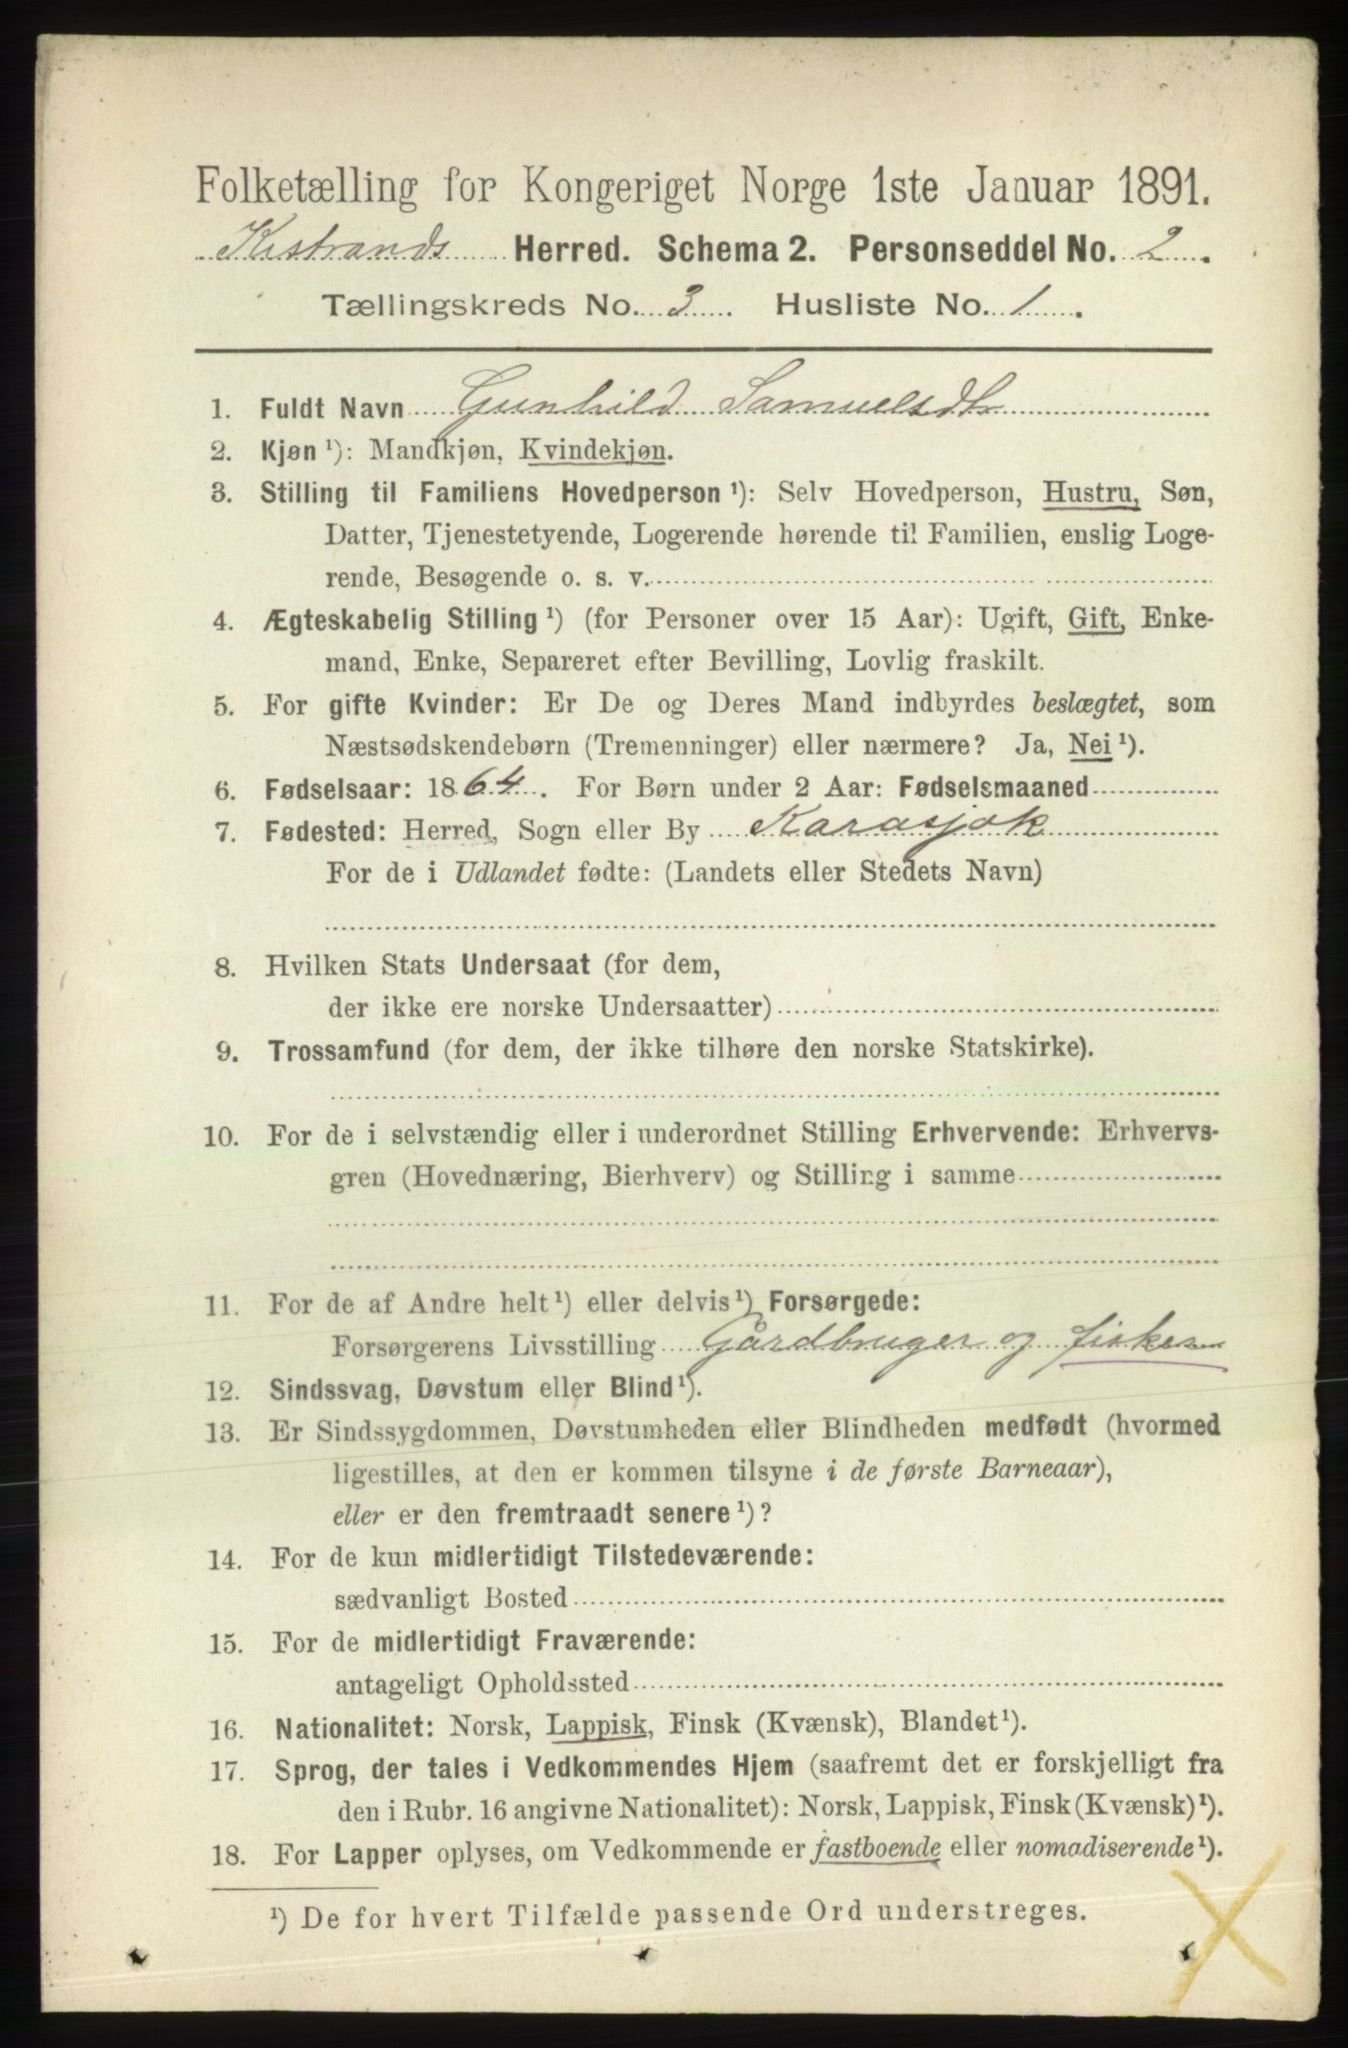 Folketælling for Kongeriget Norge 1ste Januar 1891.
Kistrands Herred. Schema 2. Personseddel No. 2.
Tællingskreds No. 3. Husliste No. 1.
1. Fuldt Navn Gunhild Samuelsdtr
2. Kjøn ¹): Mandkjøn, Kvindekjøn.
3. Stilling til Familiens Hovedperson ¹): Selv Hovedperson, Hustru, Søn,
Datter, Tjenestetyende, Logerende hørende til Familien, enslig Loge-
rende, Besøgende o. s. v.
4. Ægteskabelig Stilling ¹) (for Personer over 15 Aar): Ugift, Gift, Enke-
mand, Enke, Separeret efter Bevilling, Lovlig fraskilt.
5. For gifte Kvinder: Er De og Deres Mand indbyrdes beslægtet, som
Næstsødskendebørn (Tremenninger) eller nærmere? Ja, Nei ¹).
6. Fødselsaar: 1864. For Børn under 2 Aar: Fødselsmaaned
7. Fødested: Herred, Sogn eller By Karasjok
For de i Udlandet fødte: (Landets eller Stedets Navn)
8. Hvilken Stats Undersaat (for dem,
der ikke ere norske Undersaatter)
9. Trossamfund (for dem, der ikke tilhøre den norske Statskirke).
10. For de i selvstændig eller i underordnet Stilling Erhvervende: Erhvervs-
gren (Hovednæring, Bierhverv) og Stilling i samme
11. For de af Andre helt ¹) eller delvis ¹) Forsørgede:
Forsørgerens Livsstilling Gårdbruger og fisker
12. Sindssvag, Døvstum eller Blind ¹).
13. Er Sindssygdommen, Døvstumheden eller Blindheden medfødt (hvormed
ligestilles, at den er kommen tilsyne i de første Barneaar),
eller er den fremtraadt senere ¹)?
14. For de kun midlertidigt Tilstedeværende:
sædvanligt Bosted
15. For de midlertidigt Fraværende:
antageligt Opholdssted
16. Nationalitet: Norsk, Lappisk, Finsk (Kvænsk), Blandet ¹).
17. Sprog, der tales i Vedkommendes Hjem (saafremt det er forskjelligt fra
den i Rubr. 16 angivne Nationalitet): Norsk, Lappisk, Finsk (Kvænsk) ¹).
18. For Lapper oplyses, om Vedkommende er fastboende eller nomadiserende ¹).
¹) De for hvert Tilfælde passende Ord understreges.